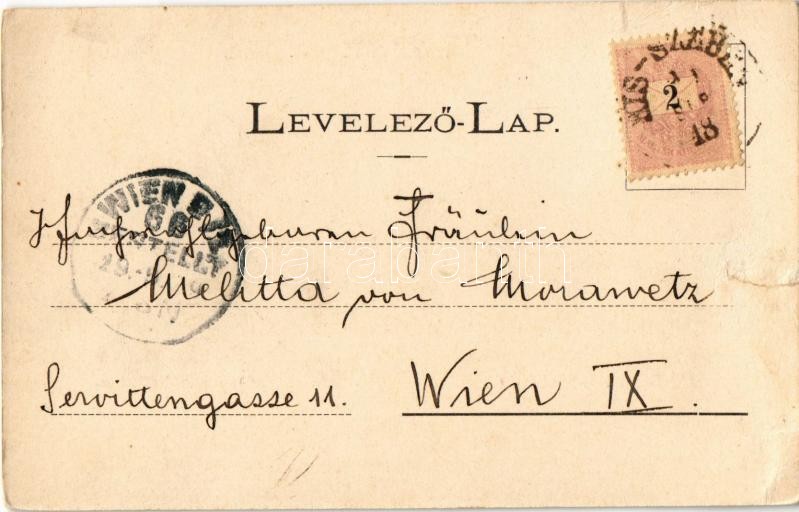 KIS-SZEBEN
2
18
LEVELEZŐ-LAP.
WIEN
BESTELLT
Hochwohlgeboren Fräulein
darabanth
Melitta von Morawetz
Servittengasse 11.
Wien IX.